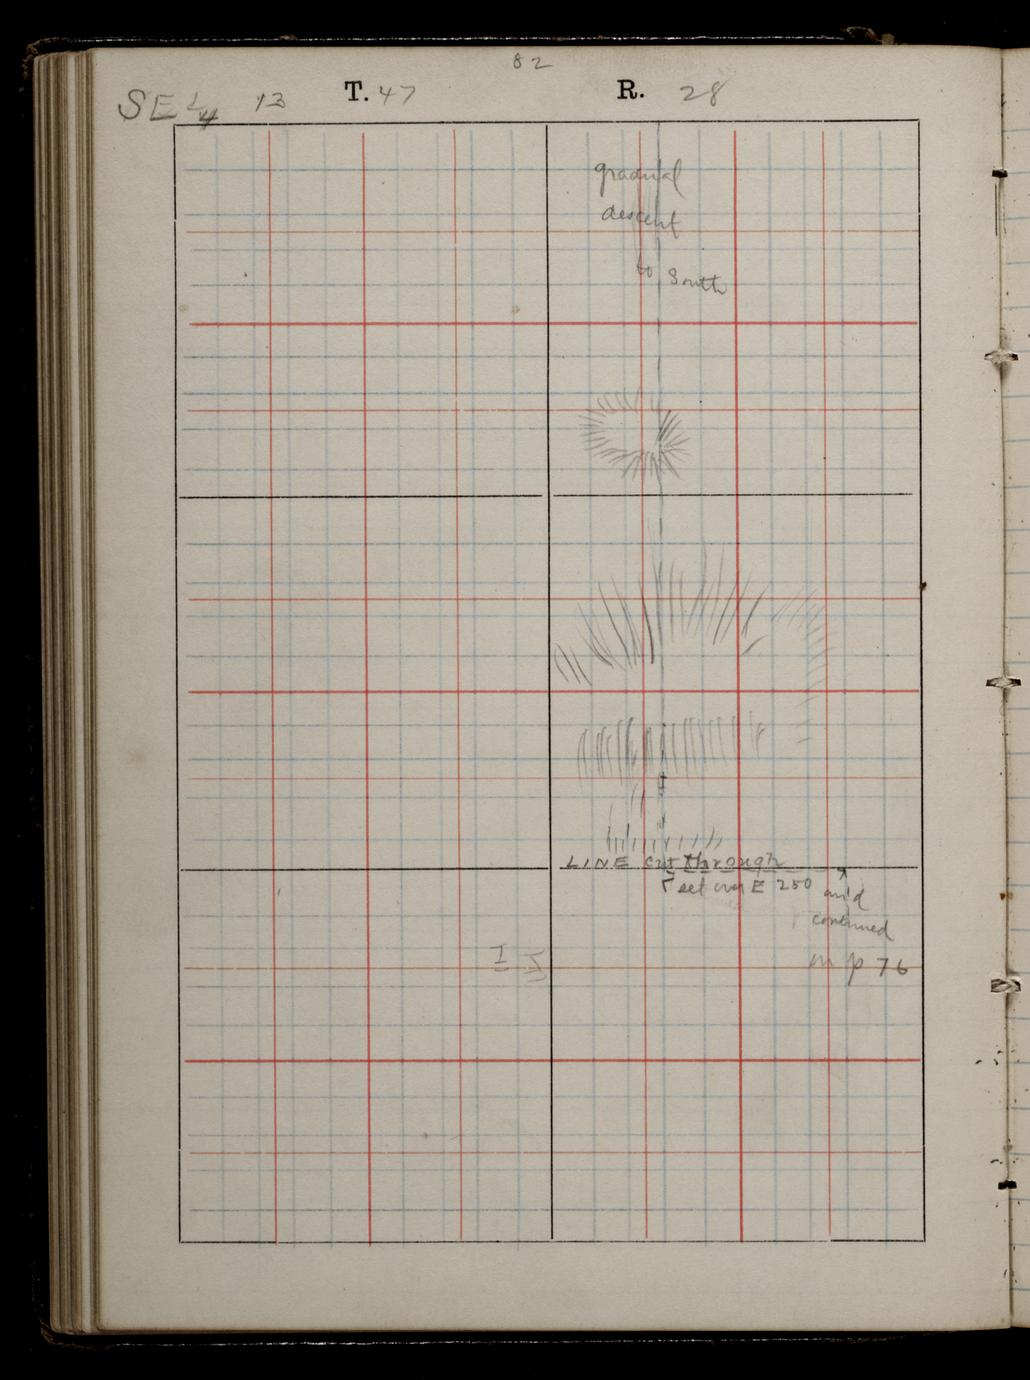 82
SE 1/4 13 T. 47 R. 28
gradual
descent
to South
LINE cut through
set over E 250 and
continued
on p 76